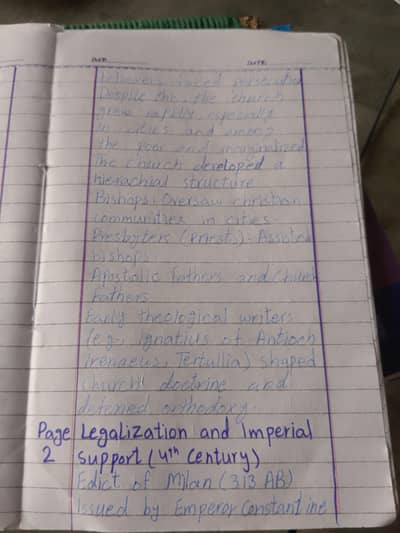 DATE: DATE:
believers faced persecution
Despite this, the church
grew rapidly, especially
in cities and among
the poor and marginalized
The church developed a
hierachial structure
Bishops: Oversaw christian
communities in cities
Presbyters (priests)- Assisted
bishops
Apostolic fathers and Church
Fathers
Early theological writers
(e.g., Ignatius of Antioch
Irenaeus, Tertullia) shaped
Church doctrine and
defened orthodoxy.
Page Legalization and Imperial
2 Support (4th Century)
Edict of Milan (313 AB)
Issued by Emperor Constantine